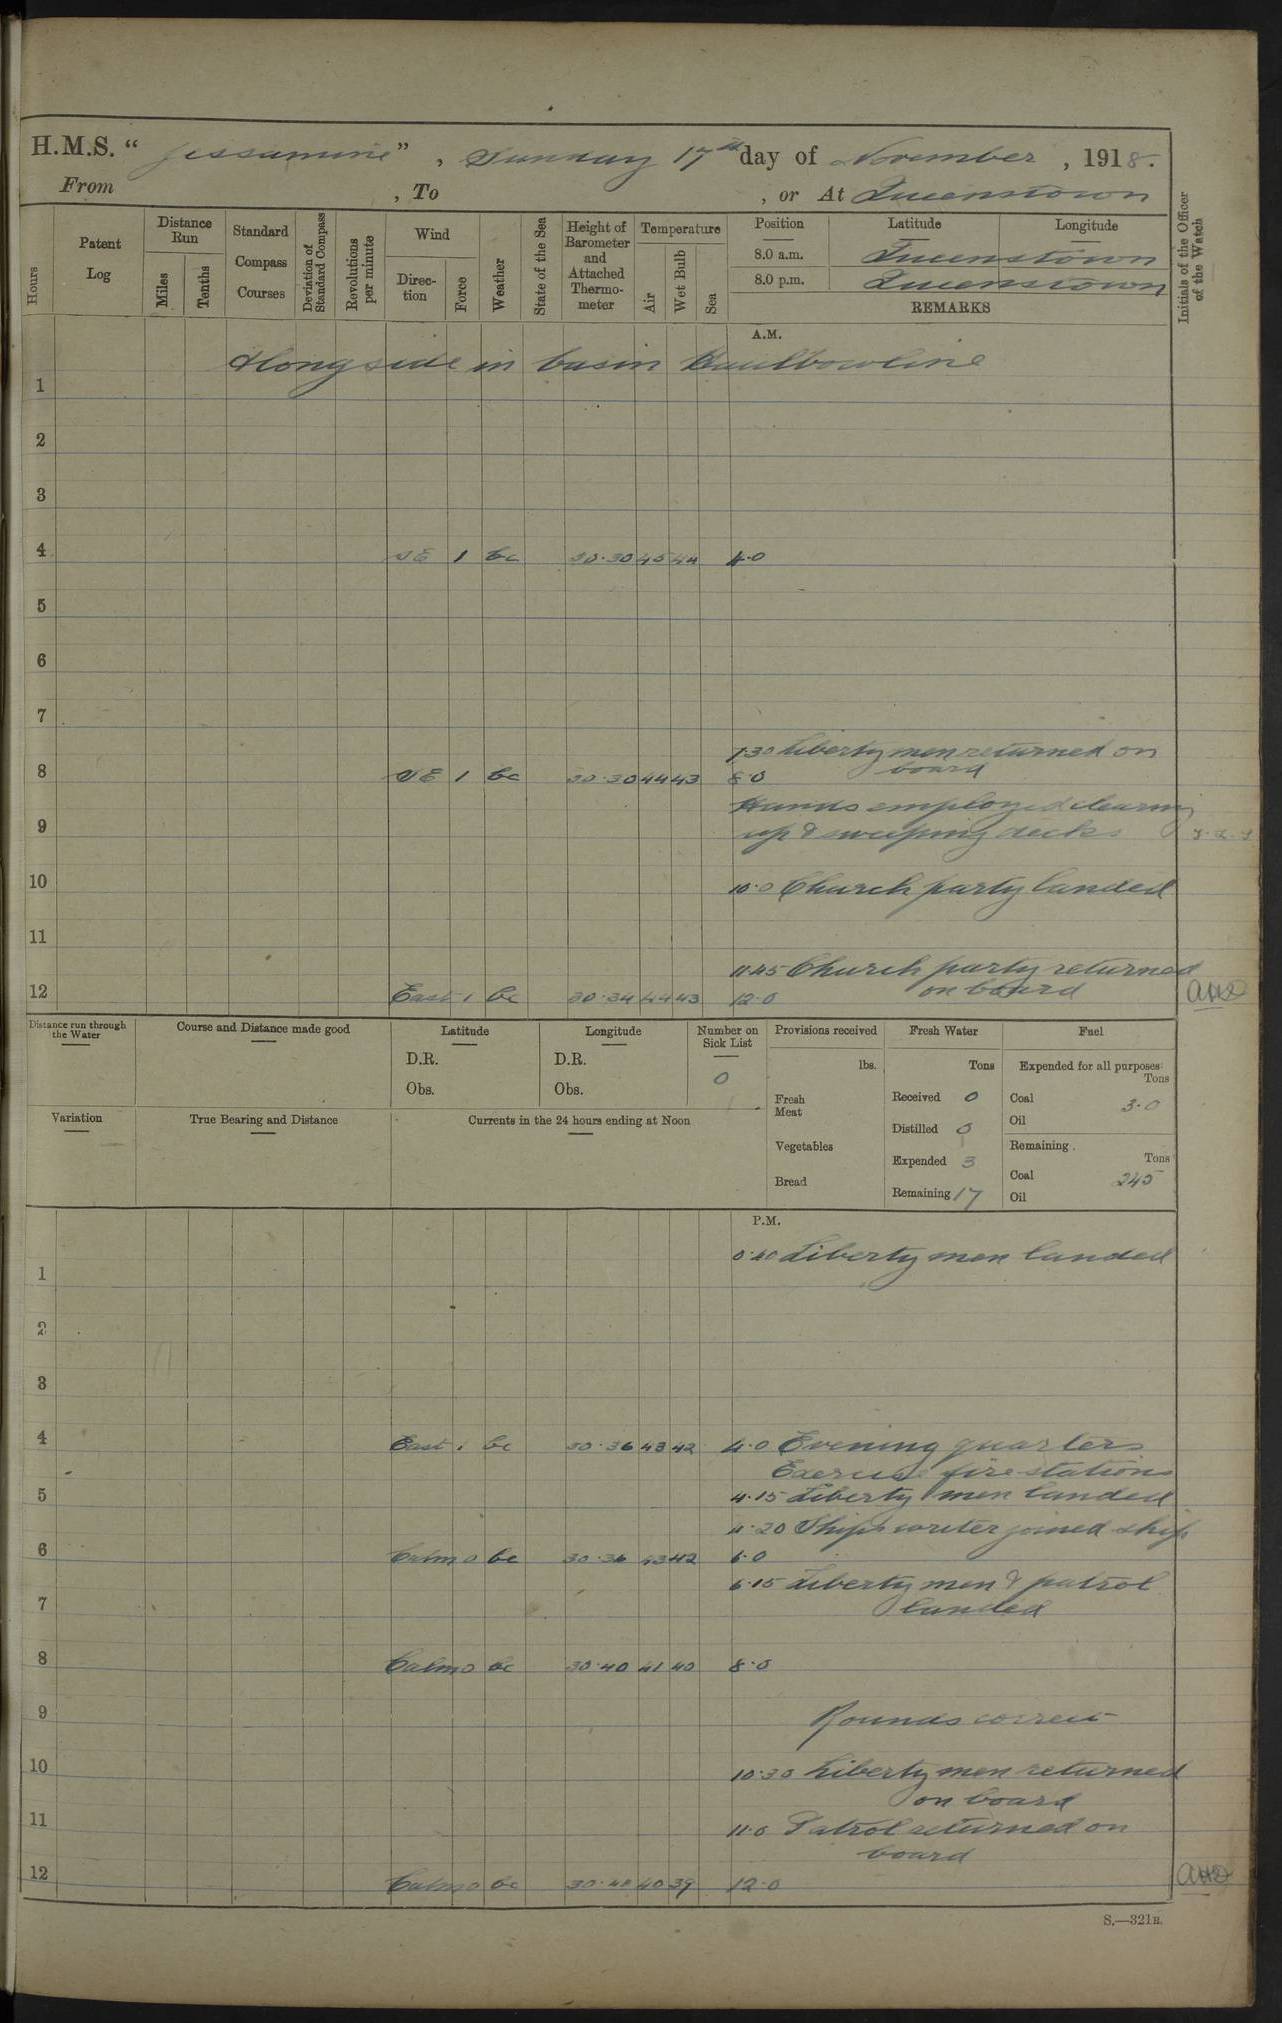 H.M.S. “ Jessamine ” , Sunday 17th day of November , 1918.
From , To , or At Queenstown
Hours
Patent Log
Distance Run
Miles
Tenths
Standard Compass Courses
Deviation of Standard Compass
Revolutions per minute
Wind
Direction
Force
Weather
State of the Sea
Height of Barometer and Attached Thermometer
Temperature
Air
Wet Bulb
Sea
Position Latitude Longitude
8.0 a.m. Queenstown
8.0 p.m. Queenstown
REMARKS
Initials of the Officer of the Watch
A.M.
Alongside in basin Haulbowline
1
2
3
4 SE 1 bc 30.30 45 44 4.0
5
6
7
7.30 Liberty men returned on
board
8 SE 1 bc 30.30 44 43 8.0
Hands employed clearing
9 up & sweeping decks
10 10.0 Church party landed
11
11.45 Church party returned
on board
12 East 1 bc 30.34 44 43 12.0
Distance run through the Water
Course and Distance made good
Latitude
D.R.
Obs.
Longitude
D.R.
Obs.
Number on Sick List
0
Provisions received
lbs.
Fresh Meat
Vegetables
Bread
Fresh Water
Tons
Received 0
Distilled 0
Expended 3
Remaining 17
Fuel
Expended for all purposes:
Tons
Coal 3.0
Oil
Remaining
Tons
Coal 245
Oil
Variation
True Bearing and Distance
Currents in the 24 hours ending at Noon
P.M.
0.40 Liberty men landed
1
2
3
4 East 1 bc 30.36 43 42 4.0 Evening quarters
Exercise fire stations
5 4.15 Liberty men landed
4.20 Ship's writer joined ship
6 Calm 0 bc 30.36 43 42 6.0
6.15 Liberty men & patrol
7 landed
8 Calm 0 bc 30.40 41 40 8.0
9 Rounds correct
10 10.30 Liberty men returned
on board
11 11.0 Patrol returned on
board
12 Calm 0 bc 30.40 40 39 12.0
S.—321B.